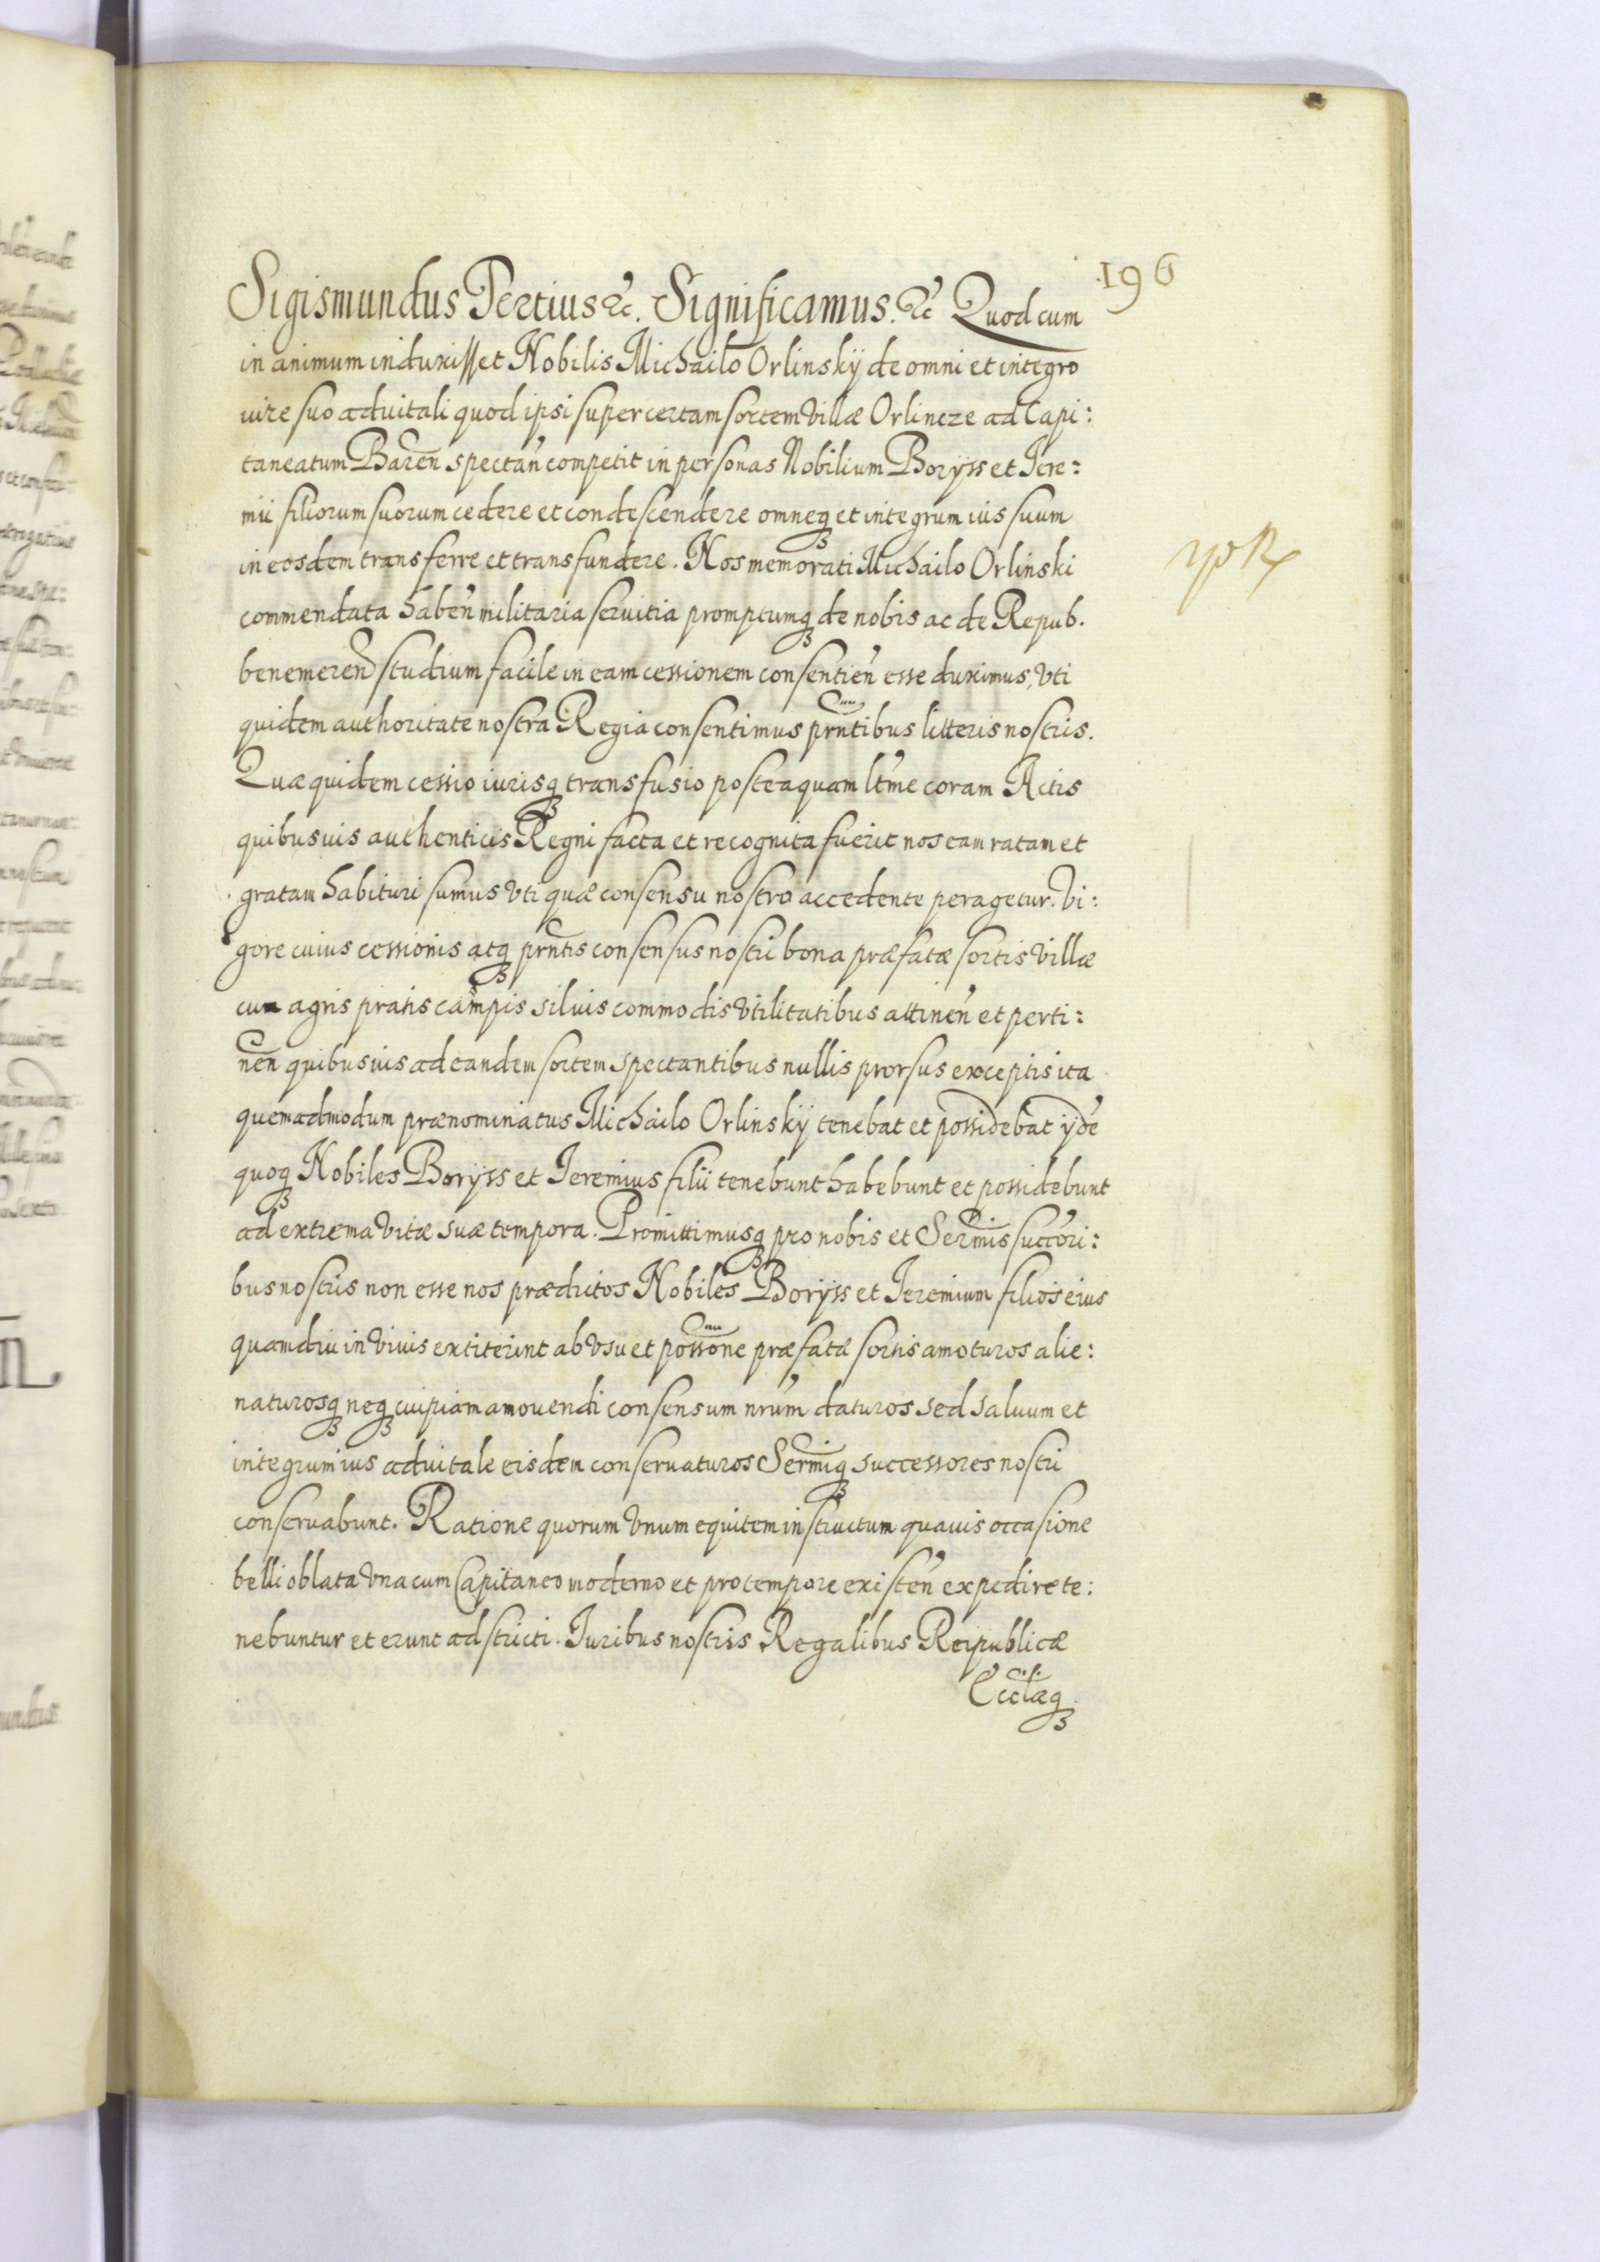 196
Sigismundus Tertius &c. Significamus. &c Quod cum
in animum induxisset Nobilis Michailo Orlinskÿ de omni et integro
iure suo aduitali quod ipsi super certam sortem villæ Orlincze ad Capi:
taneatum Baren̄ spectan̄ competit in personas Nobilium Boryss et Iere:
mii filiorum suorum cedere et condescendere omneq₃ et integrum ius suum
in eosdem transferre et transfundere. Nos memorati Michailo Orlinski
commendata haben̄ militaria seruitia promptumq₃ de nobis ac de Repub.
benemeren̄ studium facile in eam cessionem consentien̄ esse duximus, vti
quidem authoritate nostra Regia consentimus prn̄tibus litteris nostris.
Quæ quidem cessio iurisq₃ transfusio posteaquam ltm̄e coram Actis
quibusuis authenticis Regni facta et recognita fuerit nos eam ratam et
gratam habituri sumus vti quæ consensu nostro accedente peragetur. Vi:
gore cuius cessionis atq₃ prn̄tis consensus nostri bona præfatæ sortis villæ
cum agris pratis campis siluis commodis vtilitatibus attinen̄ et perti:
nen̄ quibusuis ad eandem sortem spectantibus nullis prorsus exceptis ita
quemadmodum prænominatus Michailo Orlinskÿ tenebat et possidebat ÿdē
quoq₃ Nobiles Boryss et Ieremius filii tenebunt habebunt et possidebunt
ad extrema vitæ suæ tempora. Promittimusq₃ pro nobis et Serm̄is succōri:
bus nostris non esse nos prædictos Nobiles Boryss et Ieremium filios eius
quamdiu in viuis extiterint ab vsu et possōne præfatæ sortis amoturos alie:
naturosq₃ neq₃ cuipiam amouendi consensum nrūm daturos sed saluum et
integrum ius aduitale eisdem conseruaturos Serm̄iq₃ successores nostri
conseruabunt. Ratione quorum vnum equitem instructum quauis occasione
belli oblata vna cum Capitaneo moderno et pro tempore existen̄ expedire te:
nebuntur et erunt adstricti. Iuribus nostris Regalibus Reipublicæ
Eccl̄æq₃